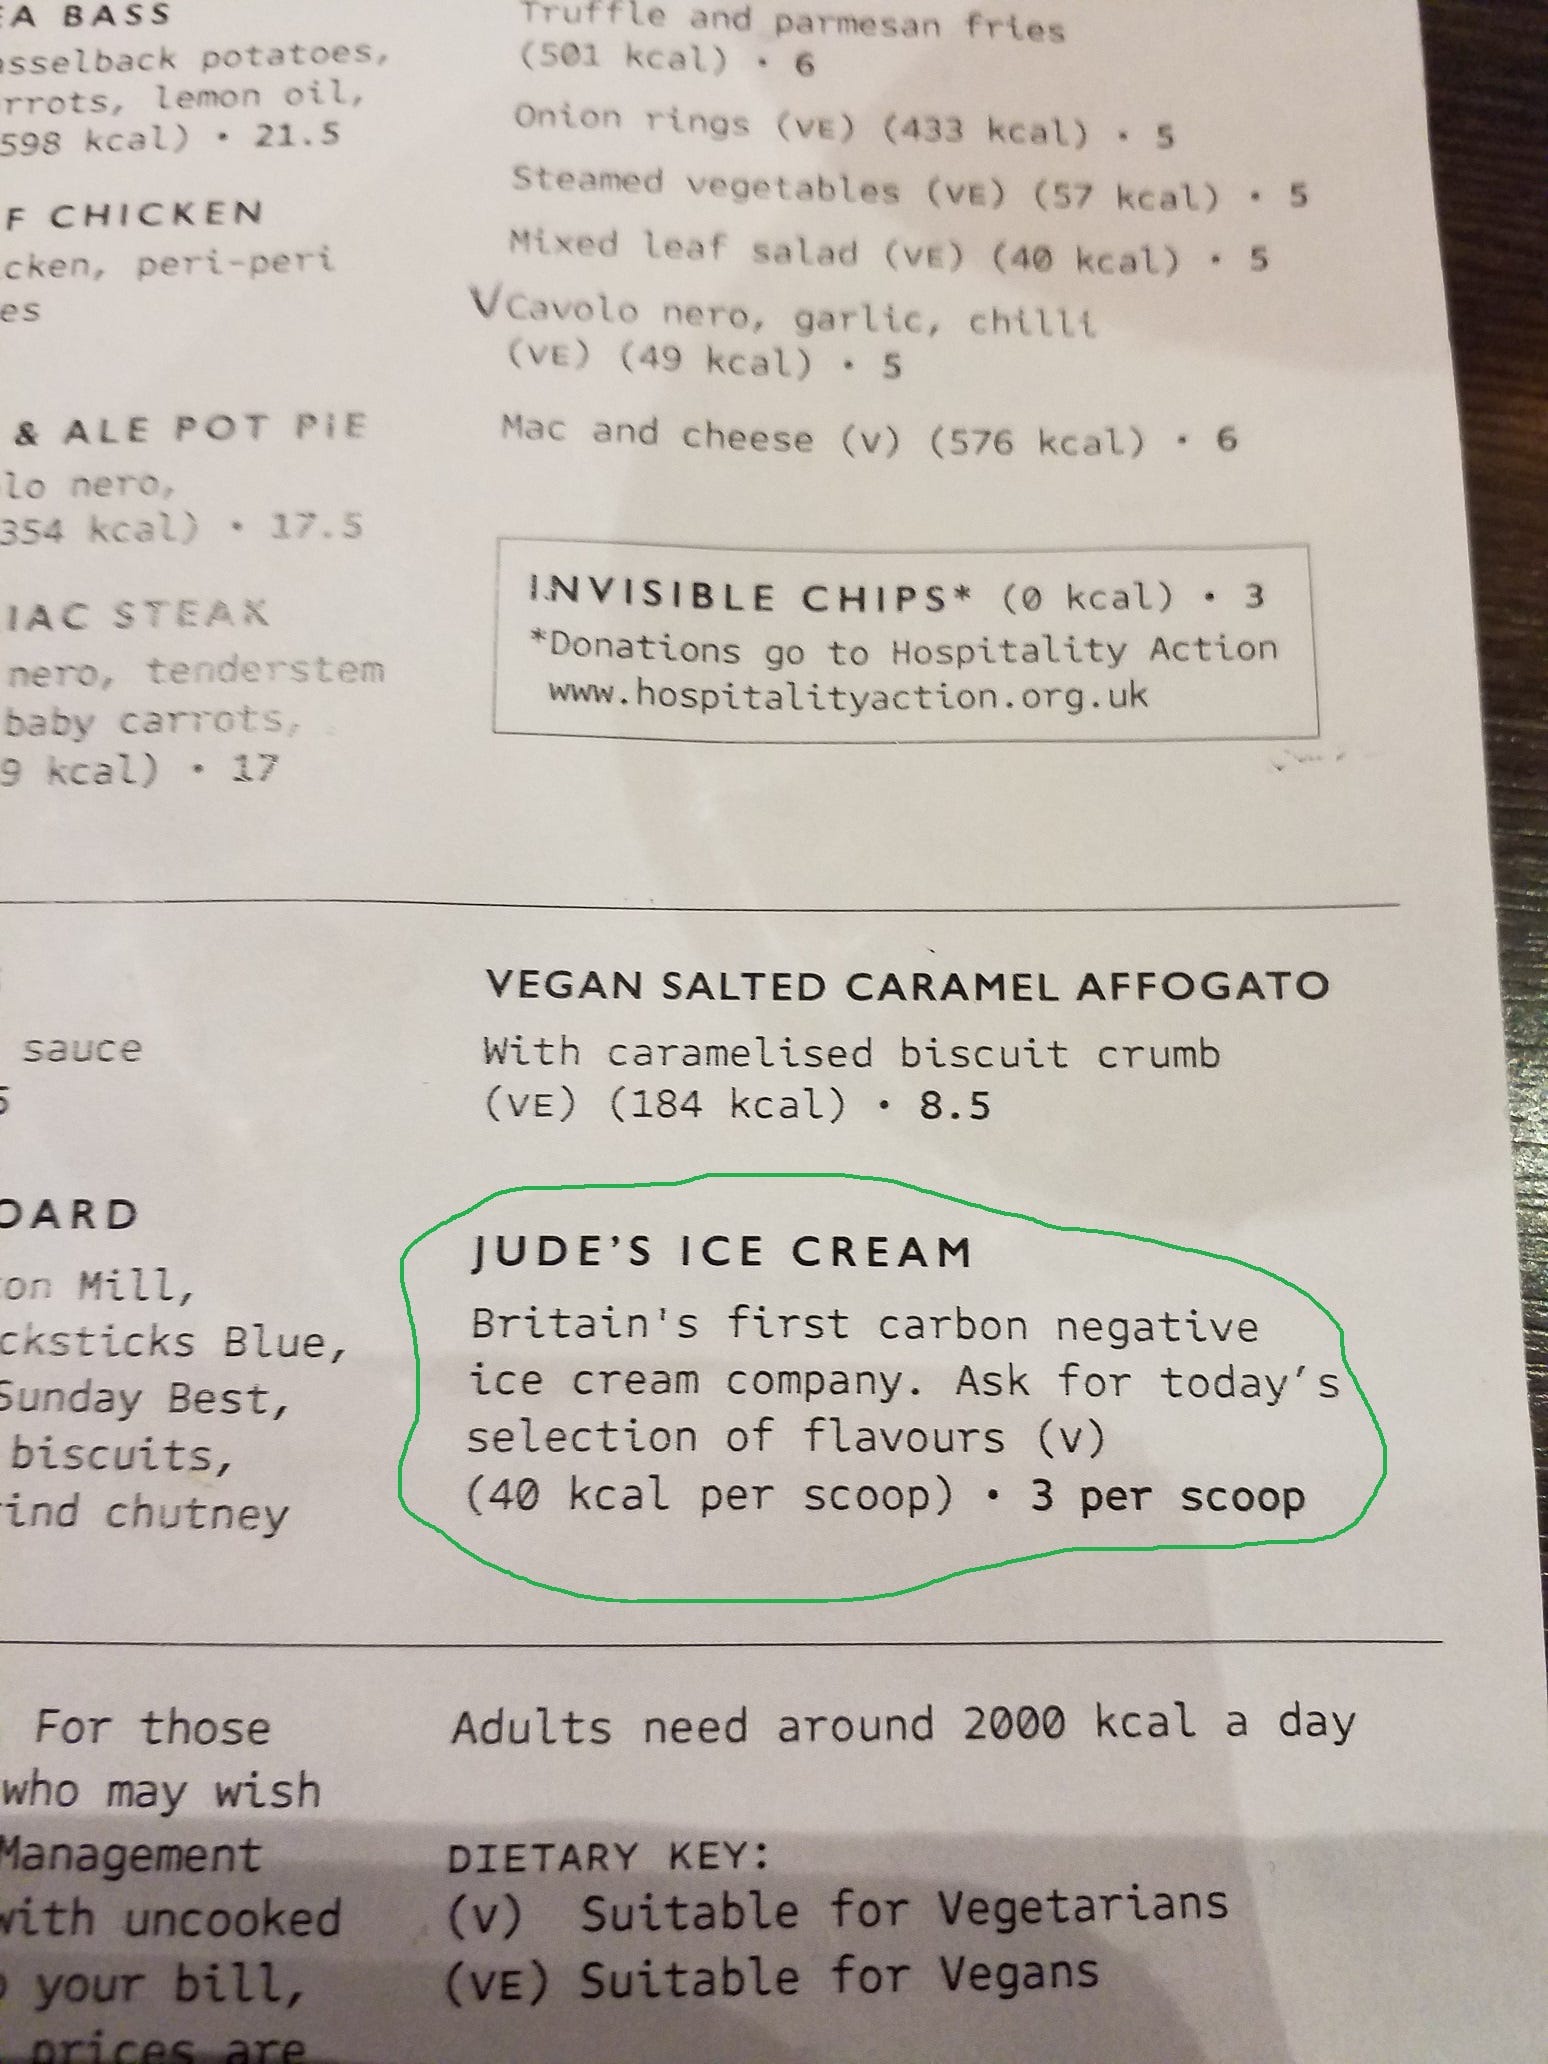 EA BASS
asselback potatoes,
rrots, lemon oil,
598 kcal) • 21.5
F CHICKEN
cken, peri-peri
es
& ALE POT PIE
lo nero,
354 kcal) • 17.5
IAC STEAK
nero, tenderstem
baby carrots,
9 kcal) • 17
Truffle and parmesan fries
(501 kcal) • 6
Onion rings (VE) (433 kcal) • 5
Steamed vegetables (VE) (57 kcal) • 5
Mixed leaf salad (VE) (40 kcal) • 5
Cavolo nero, garlic, chilli
(VE) (49 kcal) • 5
Mac and cheese (V) (576 kcal) • 6
INVISIBLE CHIPS* (0 kcal) • 3
*Donations go to Hospitality Action
www.hospitalityaction.org.uk
sauce
5
OARD
on Mill,
cksticks Blue,
Sunday Best,
biscuits,
rind chutney
VEGAN SALTED CARAMEL AFFOGATO
With caramelised biscuit crumb
(VE) (184 kcal) • 8.5
JUDE'S ICE CREAM
Britain's first carbon negative
ice cream company. Ask for today's
selection of flavours (V)
(40 kcal per scoop) • 3 per scoop
For those
who may wish
Management
with uncooked
your bill,
prices are
Adults need around 2000 kcal a day
DIETARY KEY:
(V) Suitable for Vegetarians
(VE) Suitable for Vegans